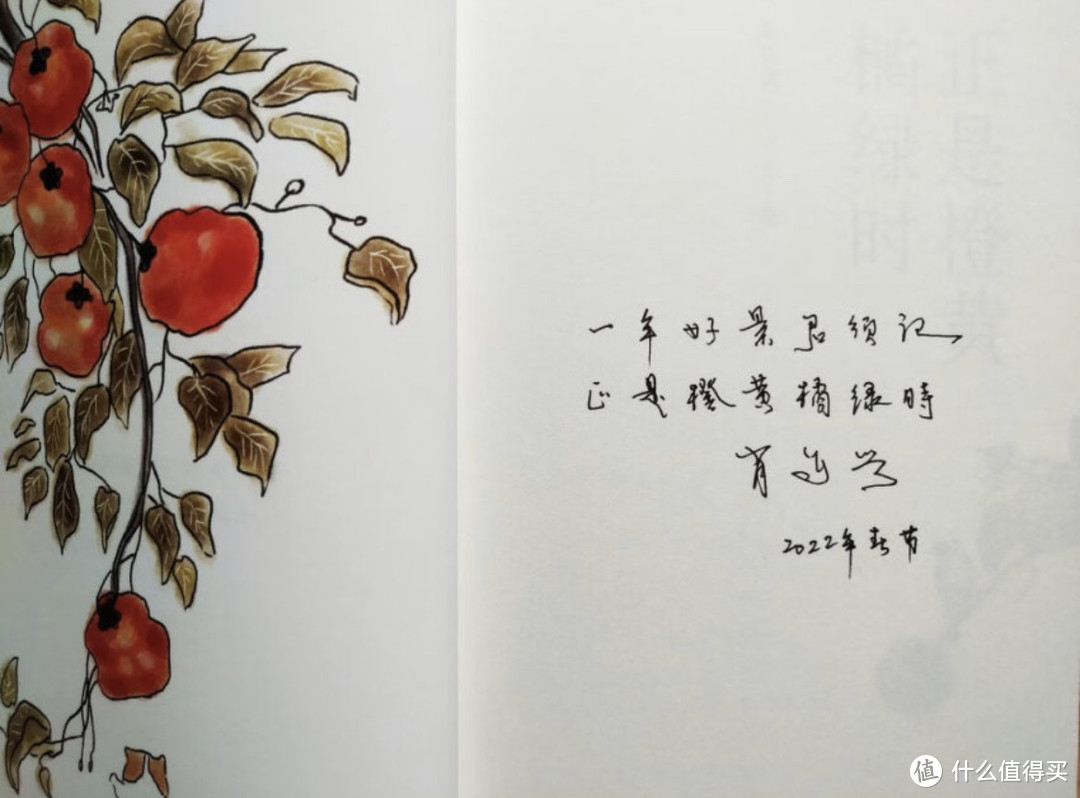 正是橙黄
橘绿时
一年好景君须记
正是橙黄橘绿時
肖复兴
2022年春节
值 什么值得买